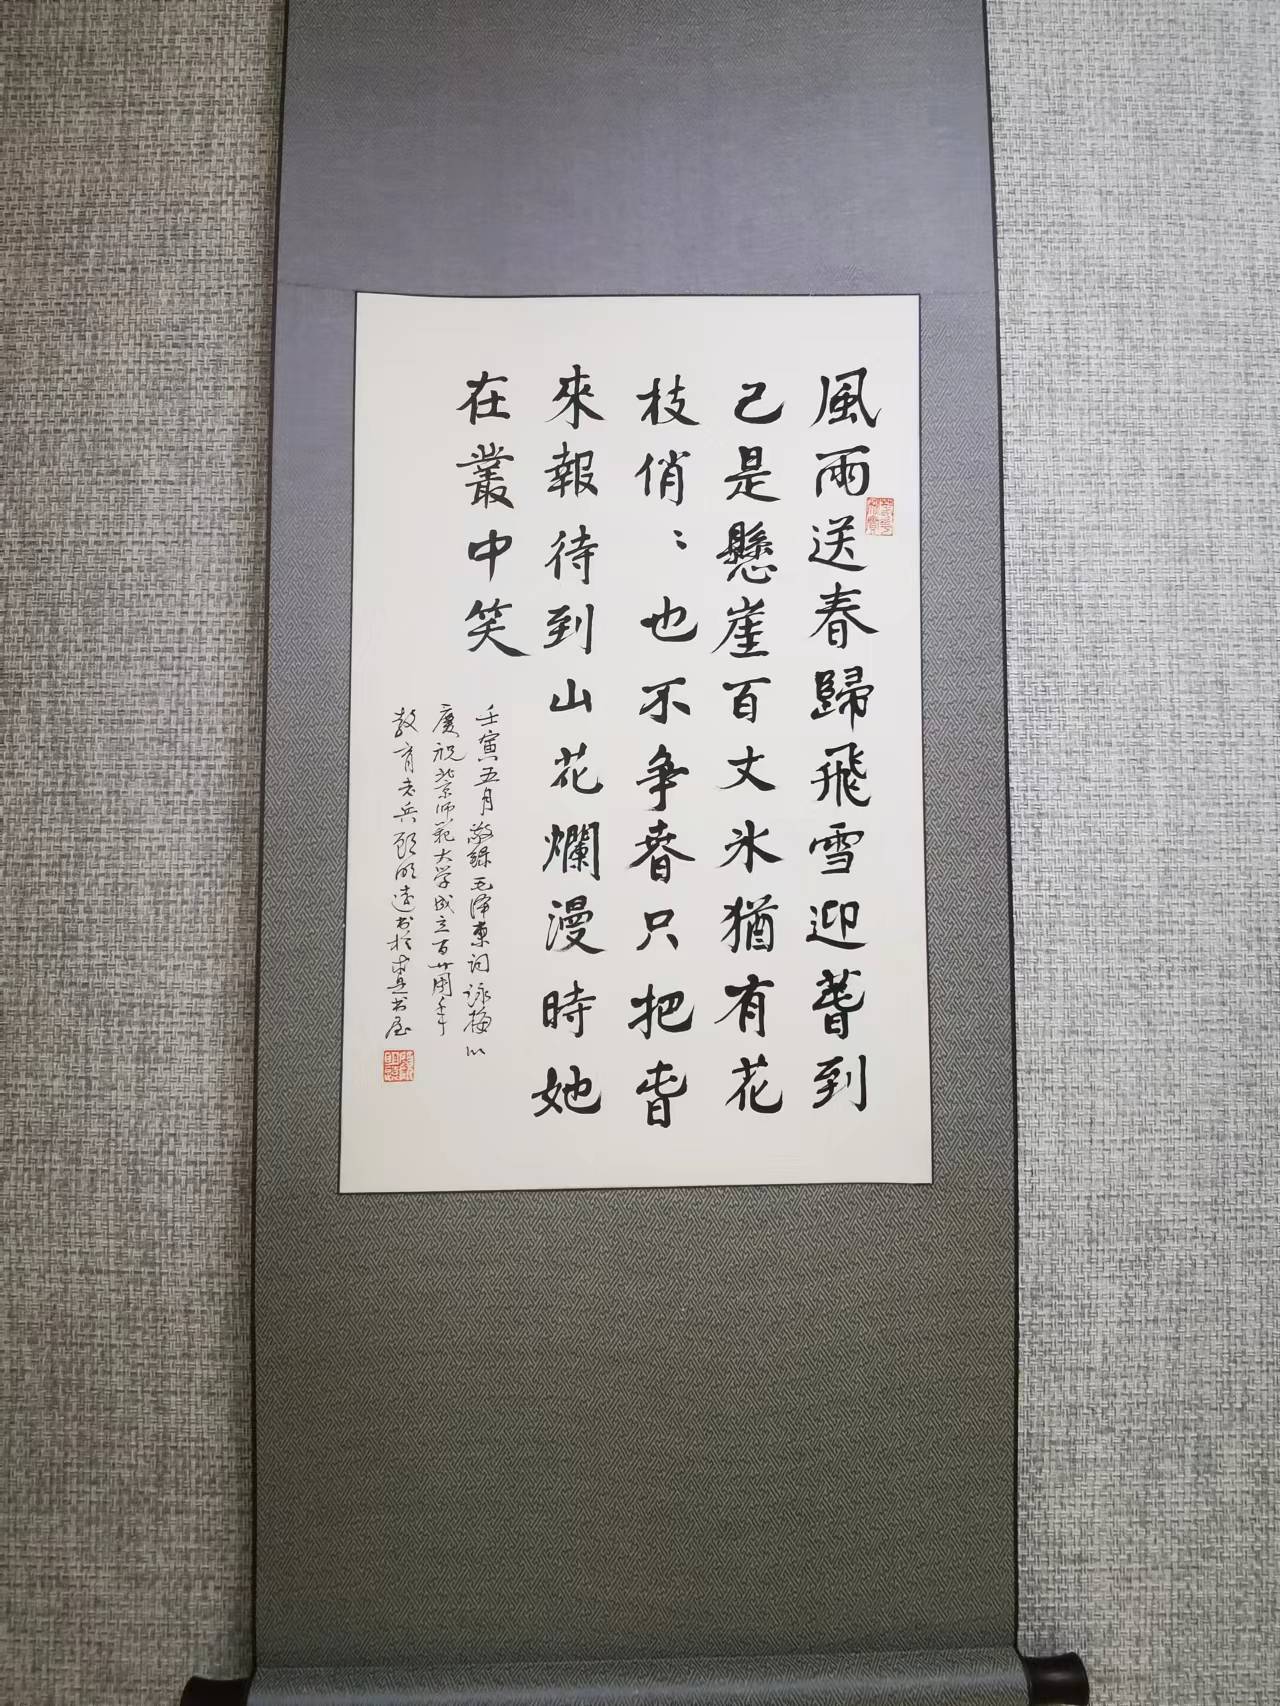 風雨送春歸飛雪迎萅到
已是懸崖百丈冰猶有花
枝俏〻也不爭春只把萅
來報待到山花爛漫時她
在叢中笑
壬寅五月敬録毛泽東词咏梅以
庆祝北京师范大学成立百廿周年
教育老兵顾明远书於求真书屋